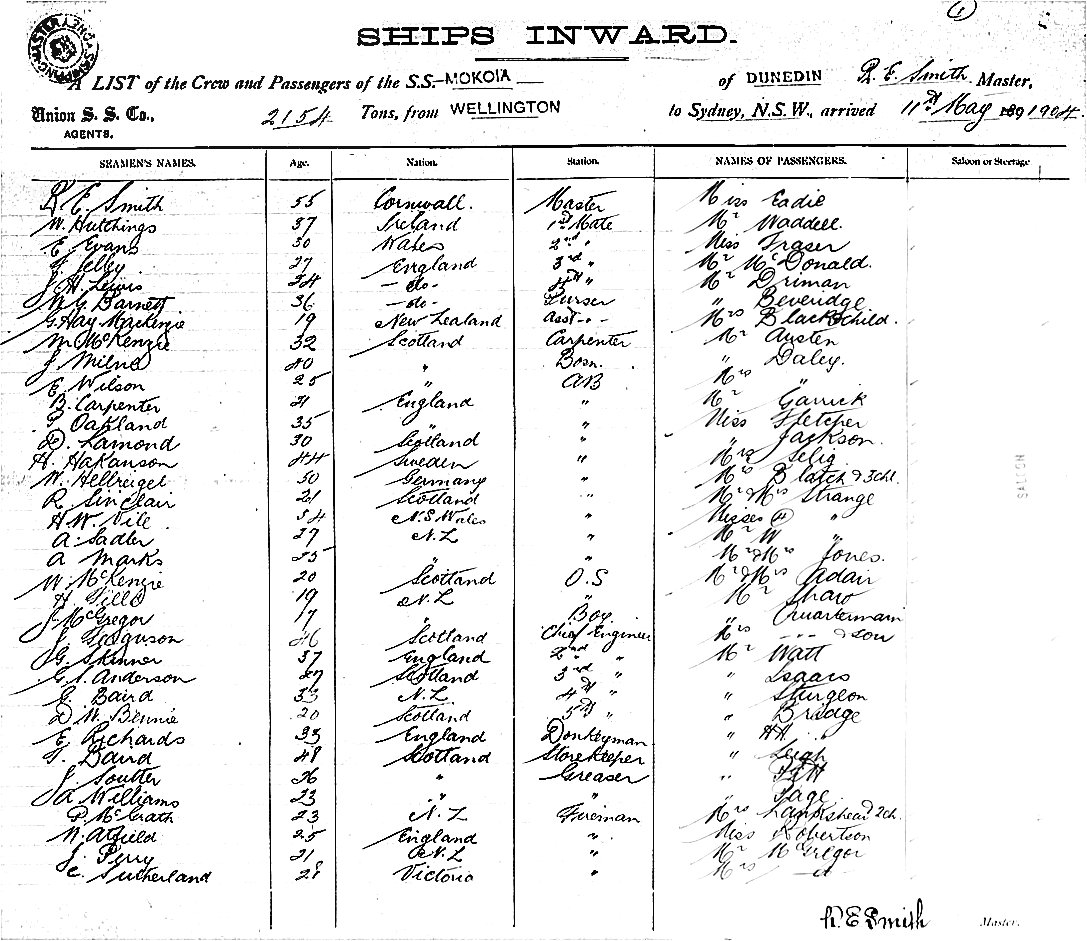 SHIPS INWARD.
A LIST of the Crew and Passengers of the S.S. MOKOIA of DUNEDIN R. E. Smith Master,
Union S. S. Co., 2154 Tons, from WELLINGTON to Sydney, N.S.W., arrived 11th May 1891904.
AGENTS.
SEAMEN'S NAMES. Age. Nation. Station. NAMES OF PASSENGERS. Saloon or Steerage
R E Smith 55 Cornwall. Master Miss Eadie
W. Hutchings 37 Ireland 1st Mate Mr Waddell.
E. Evans 30 Wales 2nd " Miss Fraser
J Jelley 27 England 3rd " Mr McDonald.
J. H. Lewis 34 - do - 4th " Mr Driman
W. G. Barnett 36 - do - Purser " Beveridge
G. Hay Mackenzie 19 New Zealand Asst - " - Mrs Black & child.
M McKenzie 32 Scotland Carpenter Mr Austen
J Milne 40 " Bosn. " Daley.
E Wilson 25 " AB Mrs "
B. Carpenter 21 England " Mr Garrick
P Oakland 35 " " Miss Fletcher
D. Lamond 30 Scotland " " Jackson.
H. Hakanson 44 Sweden " Mrs Selig
W. Hellreigel 50 Germany " Mrs Blatch & 3 chl.
R Sinclair 21 Scotland " Mr & Mrs Strange
H W. Vile 34 N.S. Wales " Misses (4) "
A. Sadler 27 N.Z " Mr W "
A Marks 25 " " Mr & Mrs Jones.
W. McKenzie 20 Scotland O.S Mr & Mrs Adair
H 19 N.Z " Mr Shaw
J. McGregor 17 " Boy " Quartermain
J. Ferguson 46 Scotland Chief Engineer Mrs - - - & son
G. Skinner 37 England 2nd " Mr Watt
G. S. Anderson 27 Scotland 3rd " " Isaacs
G. Baird 33 N.Z 4th " " Sturgeon
D W. Bennie 20 Scotland 5th " " Bridge
E Richards 33 England Donkeyman "
T. Baird 48 Scotland Storekeeper " Leigh
J. Soutter 26 " Greaser "
A Williams 23 " " Page
P. McGrath 23 N.Z Fireman Mrs Lankshear & 2 ch.
W. Atfield 25 England " Miss Robertson
J. Perry 21 N.Z " Mr McGregor
C. Sutherland 28 Victoria " Mrs
SALOON
R. E Smith Master.